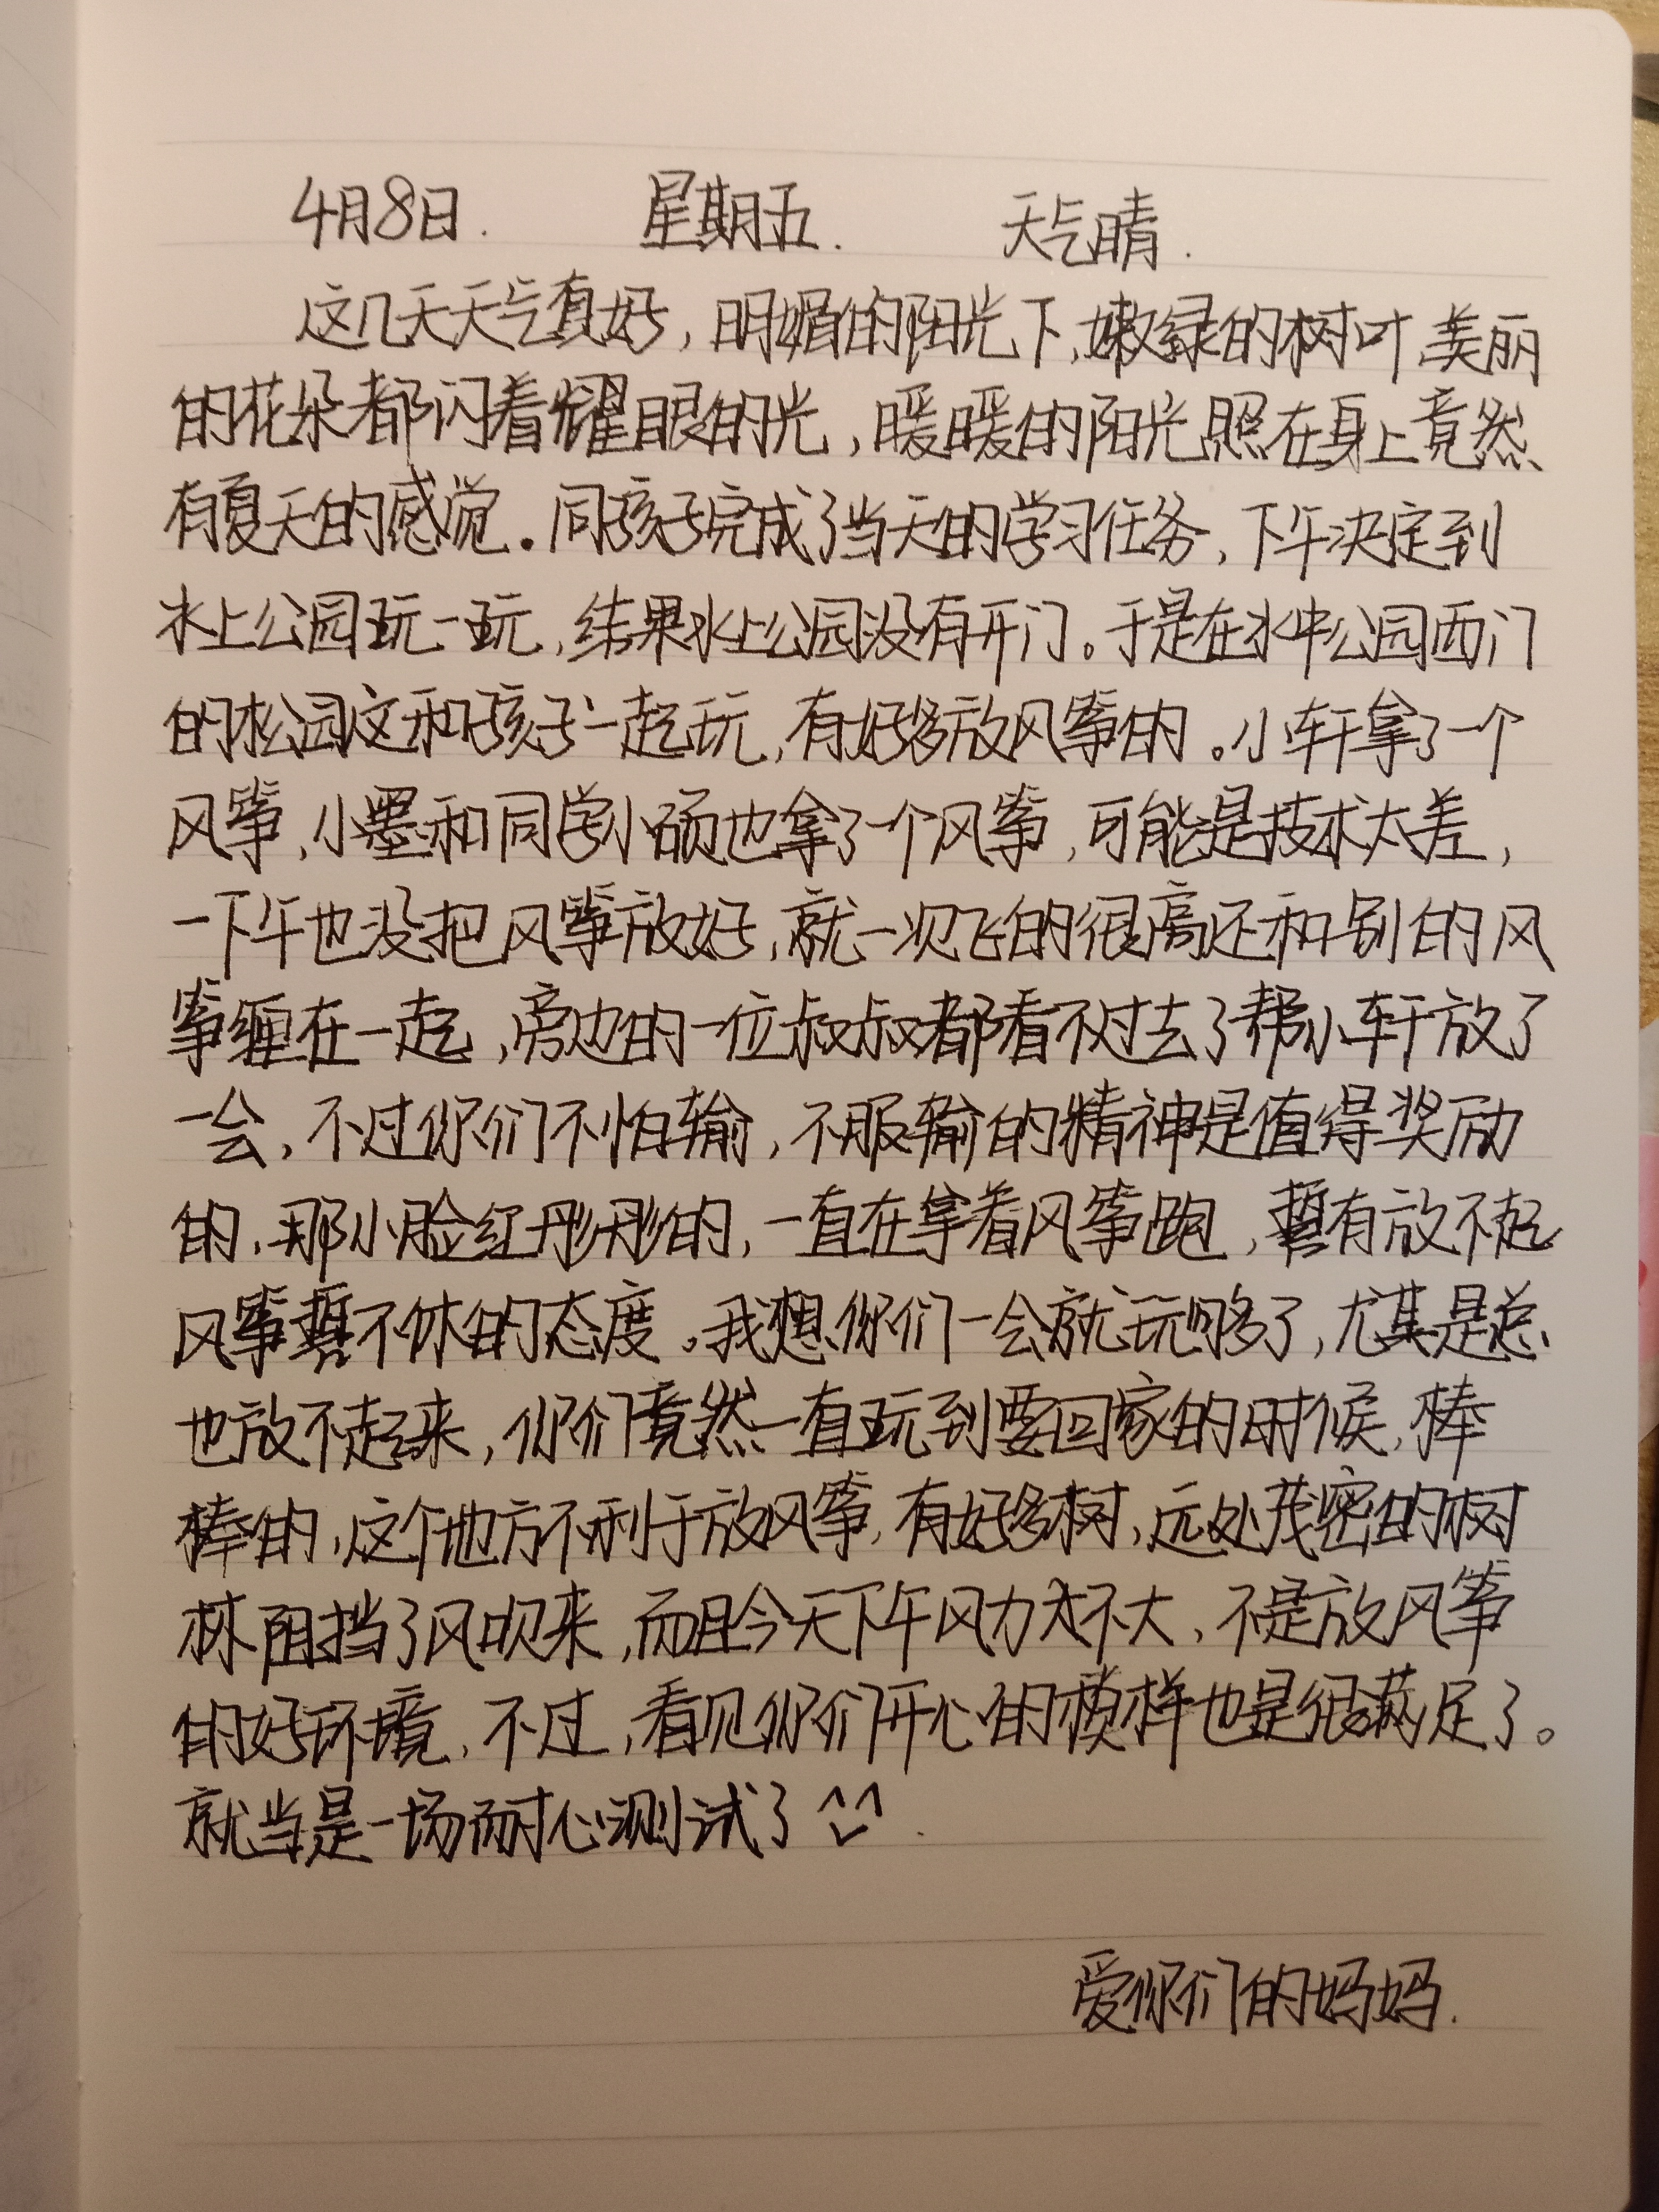 4月8日. 星期五. 天气晴.
这几天天气真好,明媚的阳光下,嫩绿的树叶,美丽
的花朵都闪着耀眼的光,暖暖的阳光照在身上竟然
有夏天的感觉。同孩子完成了当天的学习任务,下午决定到
水上公园玩一玩,结果水上公园没有开门。于是在水上公园西门
的松园这和孩子一起玩,有好多放风筝的。小轩拿了一个
风筝,小墨和同学小硕也拿了一个风筝,可能是技术太差,
一下午也没把风筝放好,就一次飞的很高还和别的风
筝缠在一起,旁边的一位叔叔都看不过去了帮小轩放了
一会,不过你们不怕输,不服输的精神是值得奖励
的,那小脸红彤彤的,一直在拿着风筝跑,誓有放不起
风筝誓不休的态度。我想你们一会就玩够了,尤其是总
也放不起来,你们竟然一直玩到要回家的时候,棒
棒的,这个地方不利于放风筝,有好多树,远处茂密的树
林阻挡了风吹来,而且今天下午风力大不大,不是放风筝
的好环境,不过,看见你们开心的模样也是很满足了。
就当是一场耐心测试了^_^.
爱你们的妈妈.